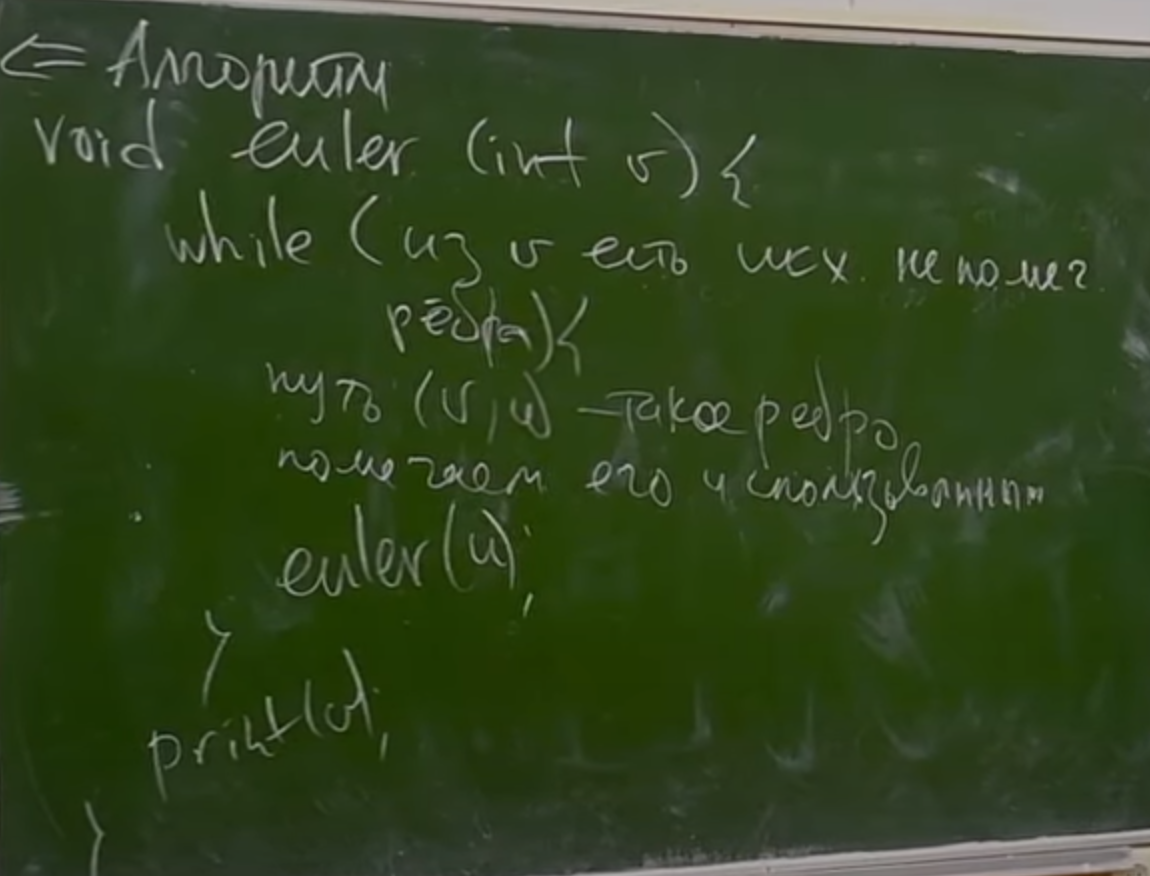 ⇐ Алгоритм
void euler (int v) {
while (из v есть исх. непомеч.
рёбра) {
пусть (v, u) – такое ребро,
помечаем его использованным
euler(u);
}
print(v);
}